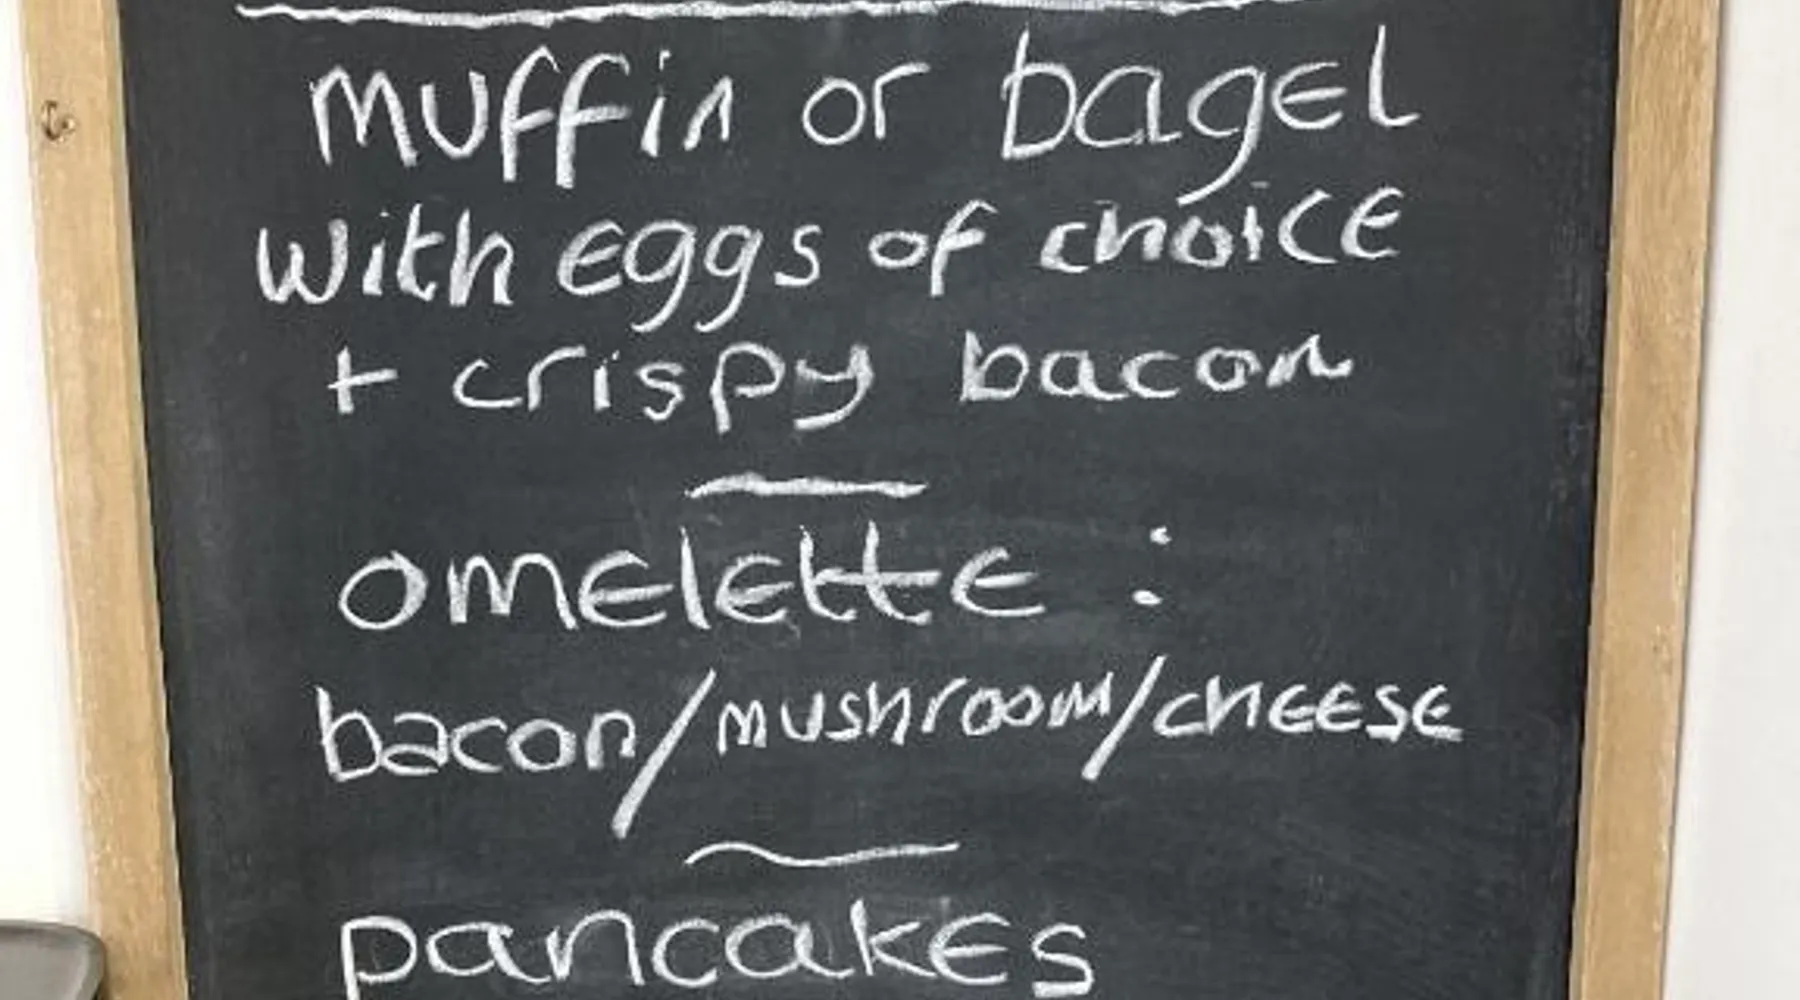 muffin or bagel
with eggs of choice
+ crispy bacon
omelette :
bacon/mushroom/cheese
pancakes